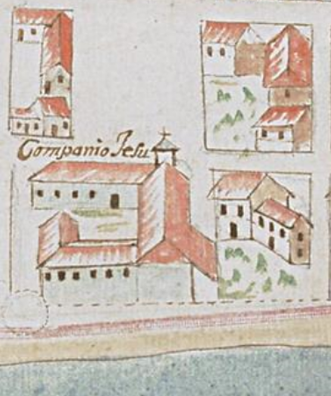 Companio Jesu